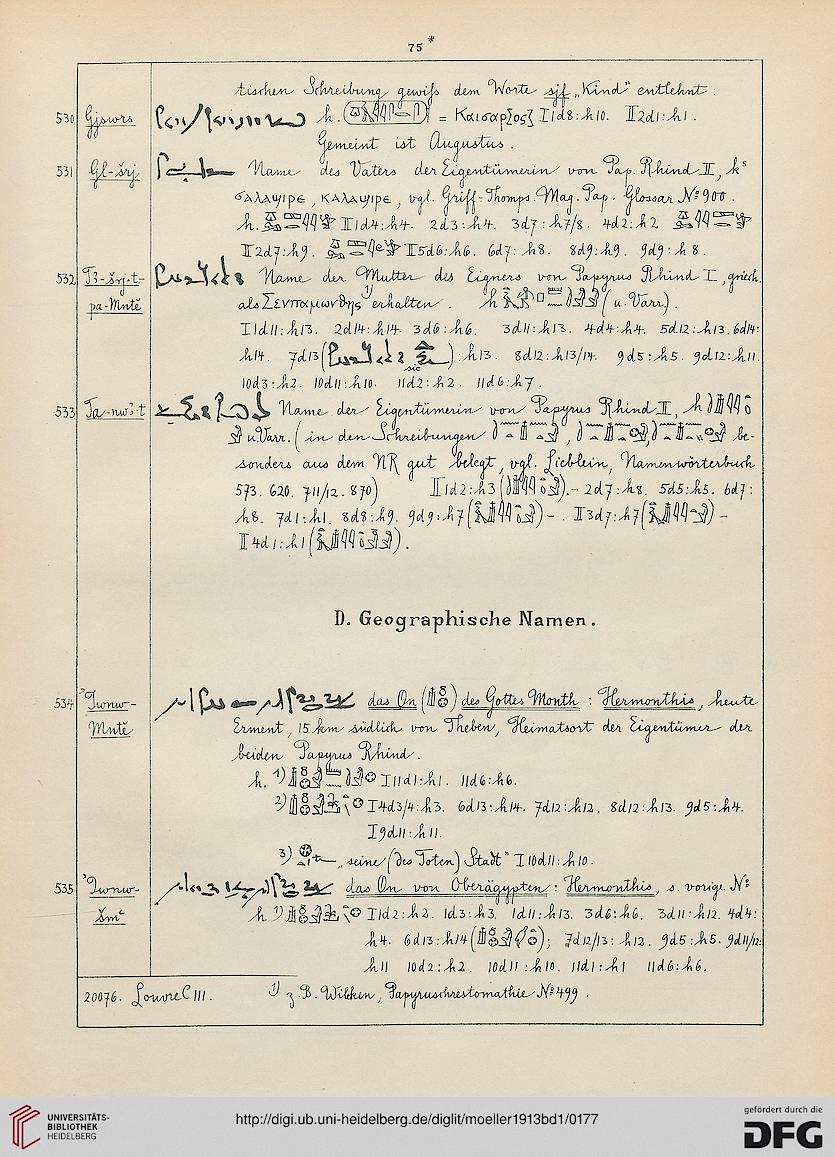 75*
tischen Schreibung gewiß dem Worte sjf „Kind“ entlehnt.
530 Gjswrs h. = Καισαρ[ος] I 1d8:h10. II 2d1:h1.
Gemeint ist Augustus.
531 Gl-šrj Name des Vaters der Eigentümerin von Pap. Rhind II, ks
ϭⲁⲗⲁϣⲓⲣⲉ, ⲕⲁⲗⲁϣⲓⲣⲉ, vgl. Griff-Thomps. Mag. Pap. Glossar No 900.
h. II 1d4:h4. 2d3:h4. 3d7:h7/8. 4d2:h2
II 2d7:h9. II 5d6:h6. 6d7:h8. 8d9:h9. 9d9:h8.
532 T3-šrj.t-pa-Mntĕ Name der Mutter des Eigners von Papyrus Rhind I, griech.
als Σενπαμωνθης 1) erhalten. h (u. Varr.).
I 1d11:h13. 2d14:h14. 3d6:h6. 3d11:h13. 4d4:h4. 5d12:h13. 6d14:
h14. 7d13 ( sic ):h13. 8d12:h13/14. 9d5:h5. 9d12:h11.
10d3:h2. 10d11:h10. 11d2:h2. 11d6:h7.
533 Ta-nw3.t Name der Eigentümerin von Papyrus Rhind II, h
u. Varr. (in den Schreibungen , , be-
sonders aus dem NR gut belegt, vgl. Lieblein, Namenwörterbuch
573. 620. 711/12. 870) II 1d2:h3 ( ).- 2d7:h8. 5d5:h5. 6d7:
h8. 7d1:h1. 8d8:h9. 9d9:h7 ( ) - . II 3d7:h7 ( ) -
II 4d1:h1 ( ).
D. Geographische Namen.
534 ʾIwnw-Mntĕ das On ( ) des Gottes Month : Hermonthis, heute
Erment, 15 km südlich von Theben, Heimatsort der Eigentümer der
beiden Papyrus Rhind.
h. 1) I 11d1:h1. 11d6:h6.
2) I 4d3/4:h3. 6d13:h14. 7d12:h12. 8d12:h13. 9d5:h4.
I 9d11:h11.
3) „seine (des Toten) Stadt“ I 10d11:h10.
535 ʾIwnw-šmʿ das On von Oberägypten : Hermonthis, s. vorige No
h 1) I 1d2:h2. 1d3:h3. 1d11:h13. 3d6:h6. 3d11:h12. 4d4:
h4. 6d13:h14 ( ); 7d12/13:h12. 9d5:h5. 9d11/12:
h11 10d2:h2. 10d11:h10. 11d1:h1 11d6:h6.
20076. Louvre C 111. 1) z.B. Wilken, Papyruschrestomathie No 499.
UNIVERSITÄTS-
BIBLIOTHEK
HEIDELBERG
http://digi.ub.uni-heidelberg.de/diglit/moeller1913bd1/0177
gefördert durch die
DFG